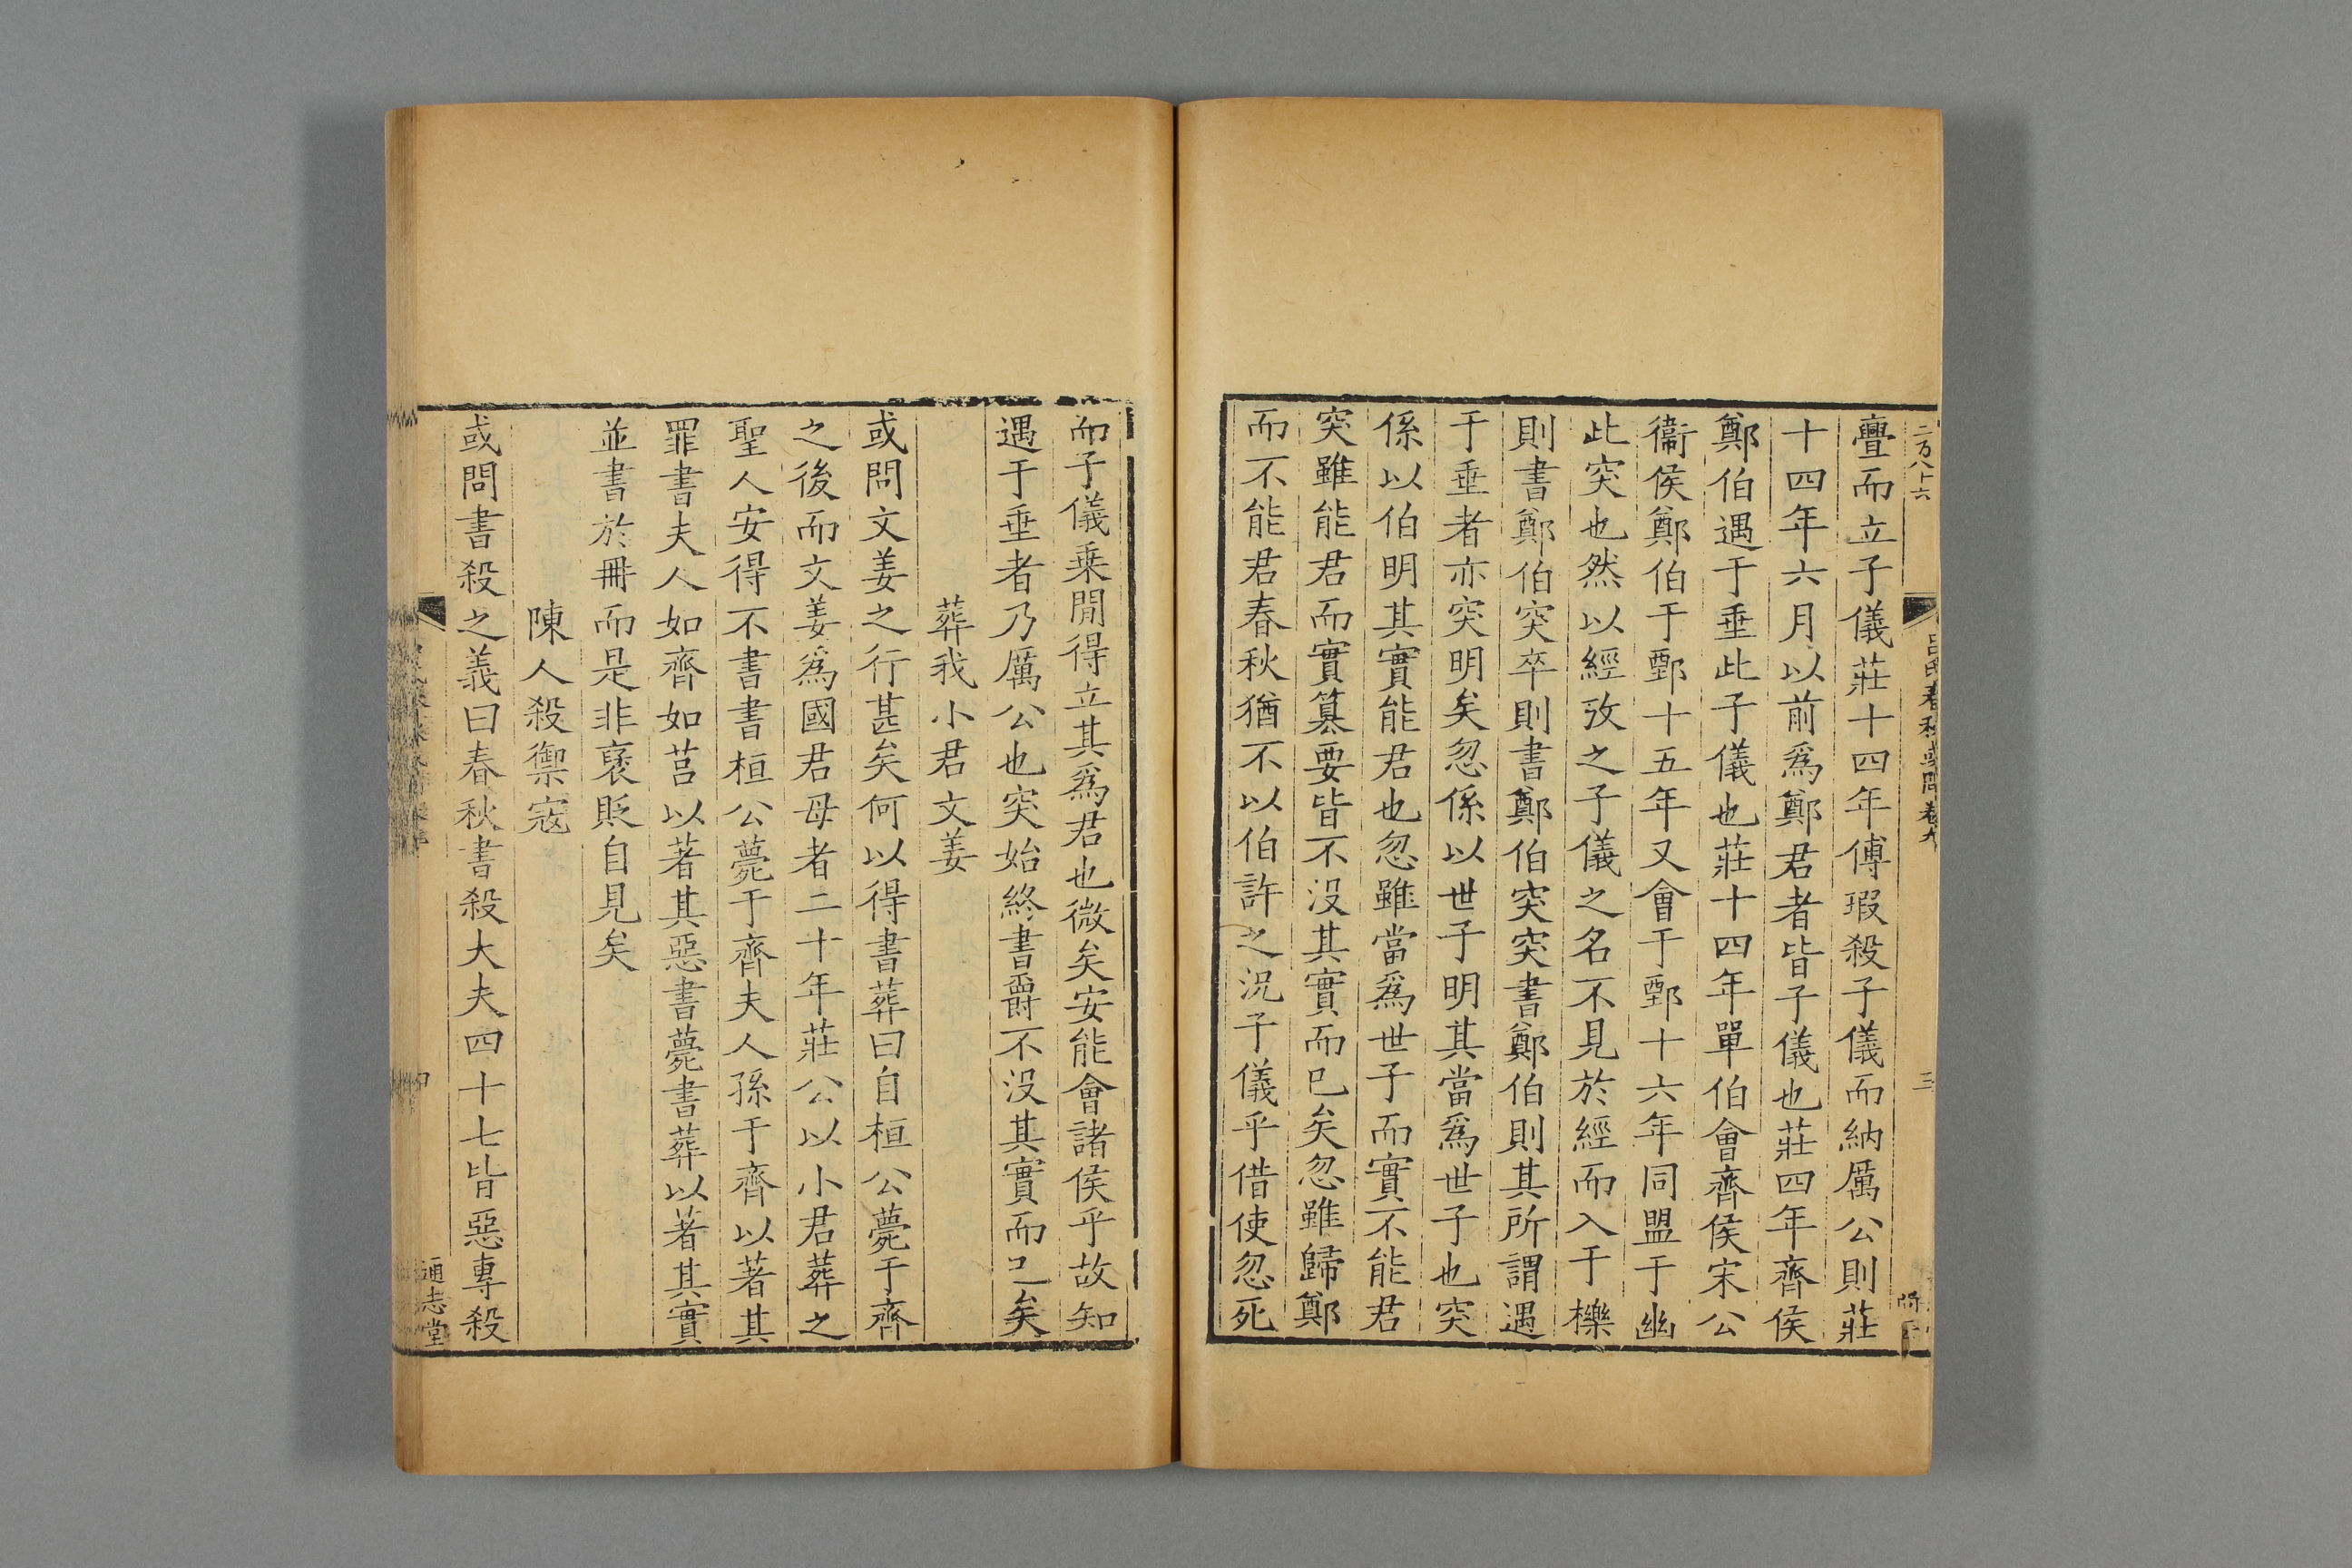 二万八十六
呂氏春秋或問卷九
三
亹而立子儀莊十四年傅瑕殺子儀而納厲公則莊
十四年六月以前爲鄭君者皆子儀也莊四年齊侯
鄭伯遇于垂此子儀也莊十四年單伯會齊侯宋公
衞侯鄭伯于鄄十五年又會于鄄十六年同盟于幽
此突也然以經攷之子儀之名不見於經而入于櫟
則書鄭伯突卒則書鄭伯突突書鄭伯則其所謂遇
于垂者亦突明矣忽係以世子明其當爲世子也突
係以伯明其實能君也忽雖當爲世子而實不能君
突雖能君而實篡要皆不没其實而已矣忽雖歸鄭
而不能君春秋猶不以伯許之況子儀乎借使忽死
而子儀乗閒得立其爲君也微矣安能會諸侯乎故知
遇于垂者乃厲公也突始終書爵不没其實而已矣
葬我小君文姜
或問文姜之行甚矣何以得書葬曰自桓公薨于齊
之後而文姜爲國君母者二十年莊公以小君葬之
聖人安得不書書桓公薨于齊夫人孫于齊以著其
罪書夫人如齊如莒以著其惡書薨書葬以著其實
並書於冊而是非襃貶自見矣
陳人殺禦寇
或問書殺之義曰春秋書殺大夫四十七皆惡專殺
四
通志堂